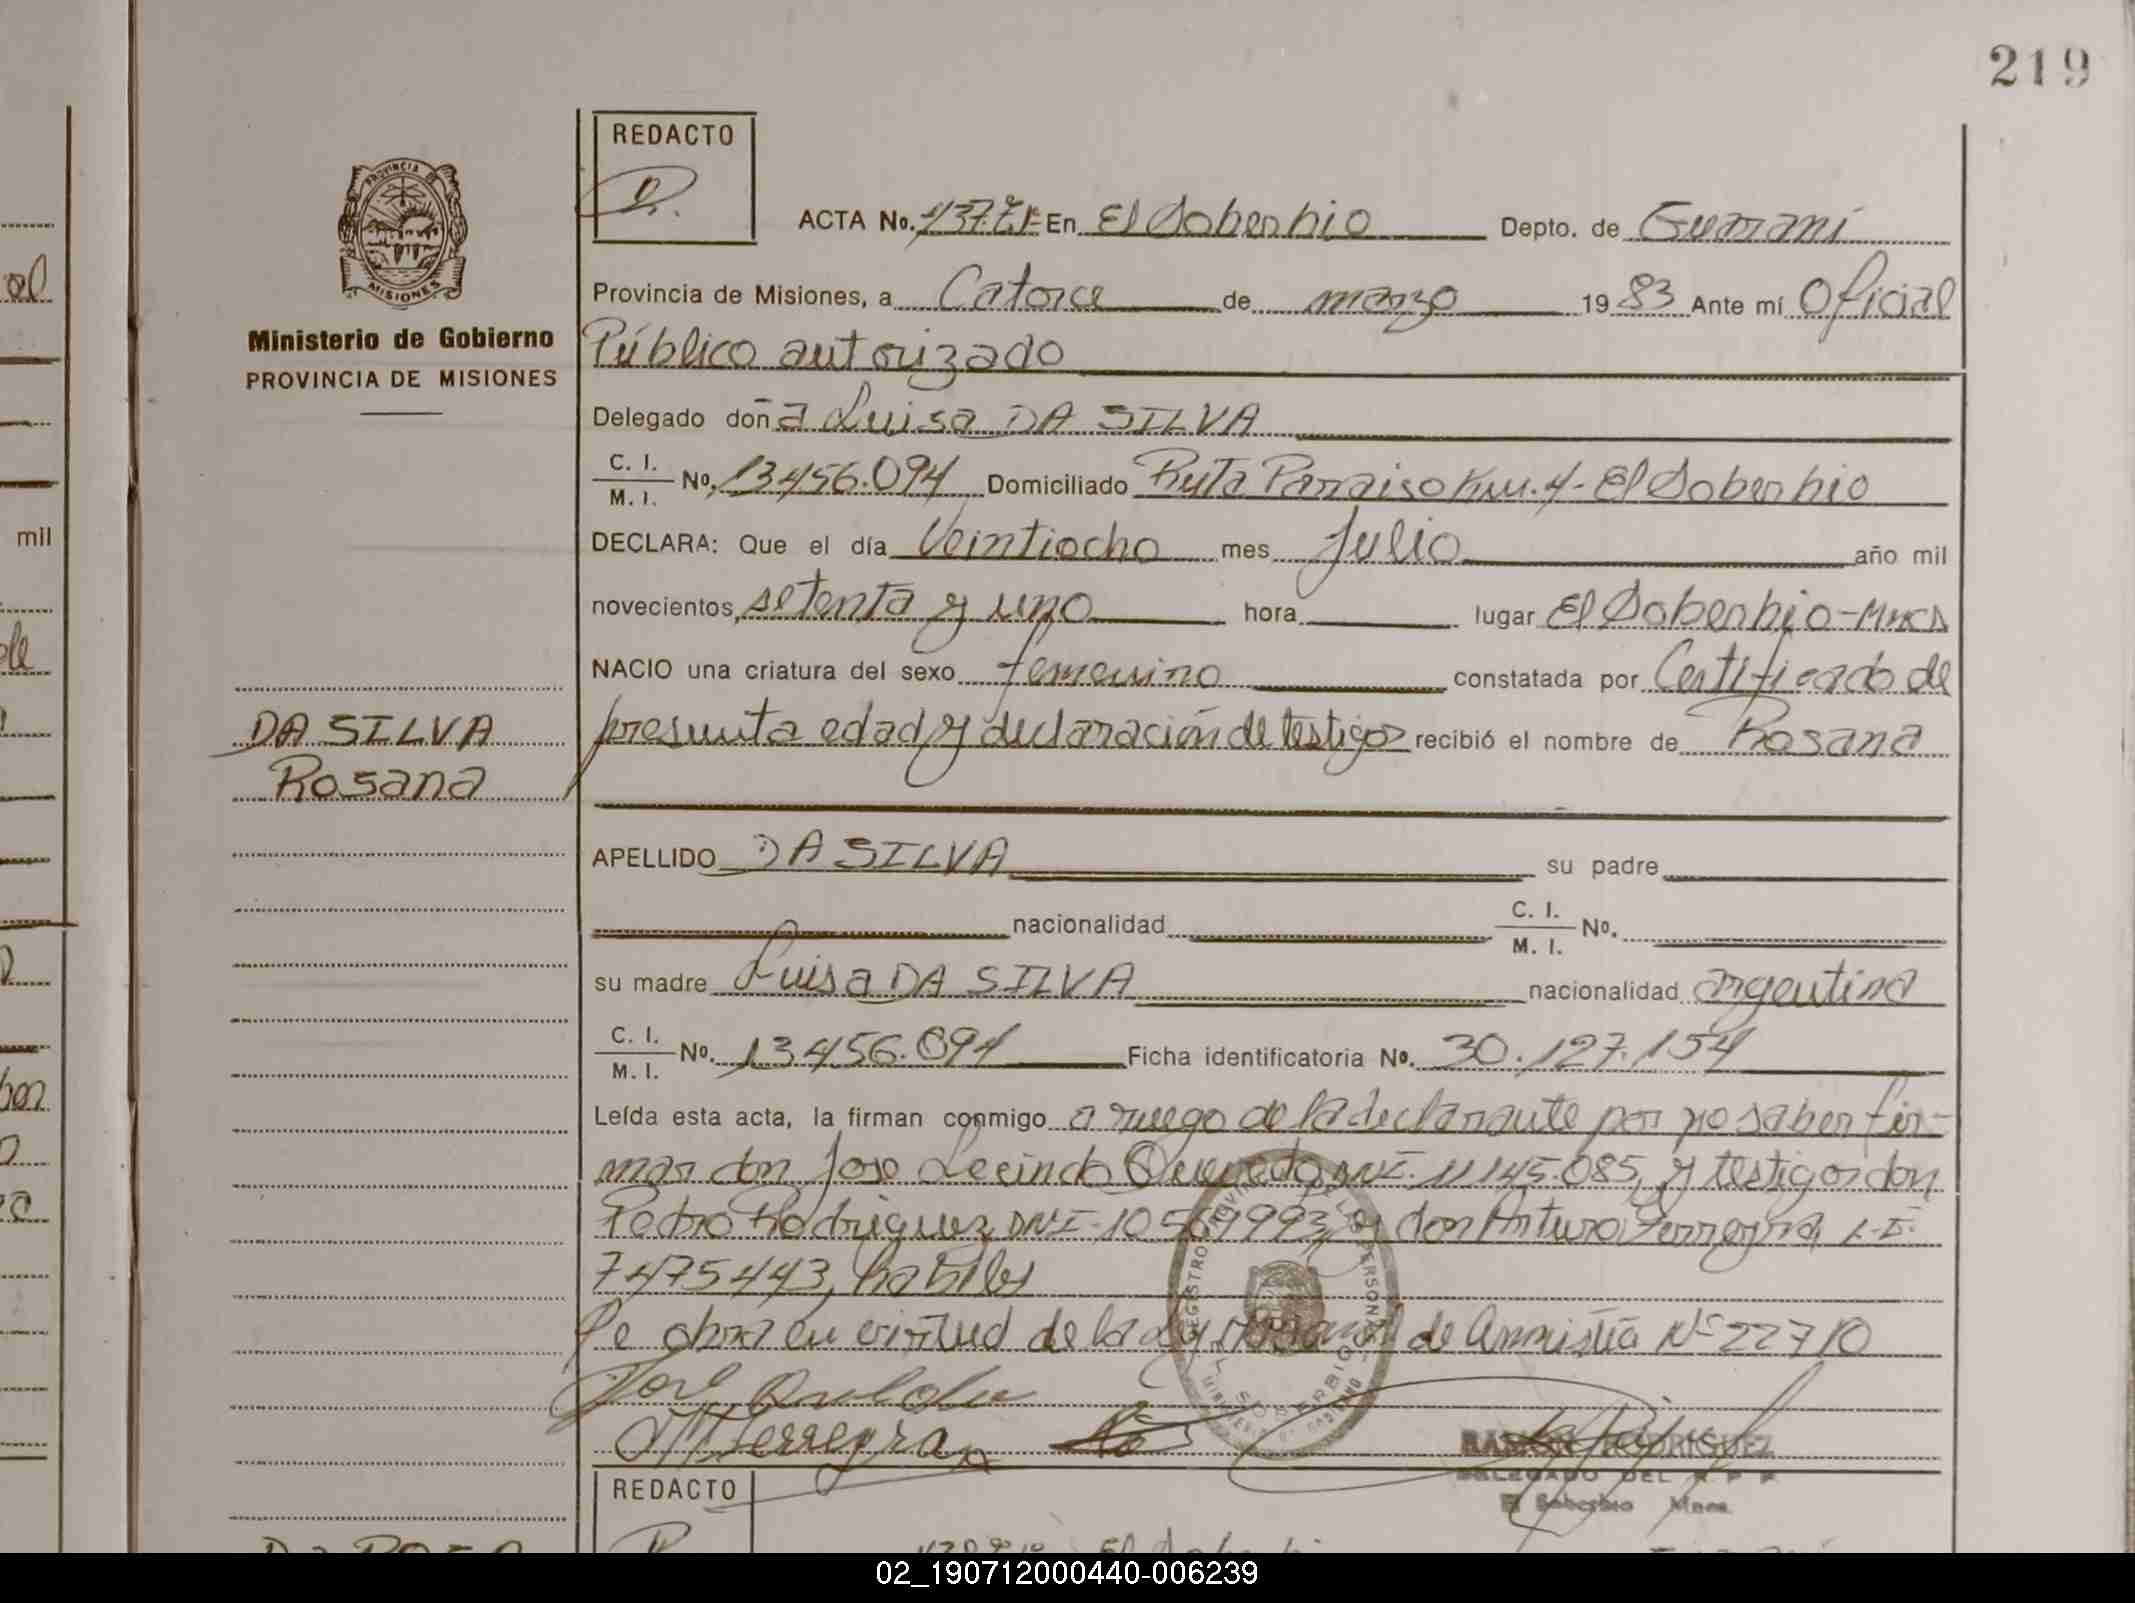 219
REDACTO
PROVINCIA DE
MISIONES
Ministerio de Gobierno
PROVINCIA DE MISIONES
ACTA No. En El Soberbio Depto. de Guaraní
Provincia de Misiones, a Catorce de marzo 1983 Ante mí Oficial
Público autorizado
Delegado doña Luisa DA SILVA
C. I. / M. I. No. 13456.094 Domiciliado Ruta Paraiso Km. 4 - El Soberbio
DECLARA: Que el día Veintiocho mes Julio año mil
novecientos, setenta y uno hora lugar El Soberbio - Mnes
NACIO una criatura del sexo femenino constatada por Certificado de
presunta edad y declaración de testigos recibió el nombre de Rosana
DA SILVA
Rosana
APELLIDO DA SILVA su padre
nacionalidad C. I. / M. I. No.
su madre Luisa DA SILVA nacionalidad argentina
C. I. / M. I. No. 13456.094 Ficha identificatoria No. 30.127.154
Leída esta acta, la firman conmigo a ruego de la declarante por no saber fir-
mar don Jose Lecindo DNI. 11145.085, y testigos don
Pedro Rodriguez DNI-10569993, y don Arturo Ferreyra, L-E.
7475443, habiles
Se obra en virtud de la Ley de Amnistia Nº 22710
Ferreyra
RAMON RODRIGUEZ
DELEGADO DEL R P P
El Soberbio Mnes.
REDACTO
El Soberbio
mil
02_190712000440-006239